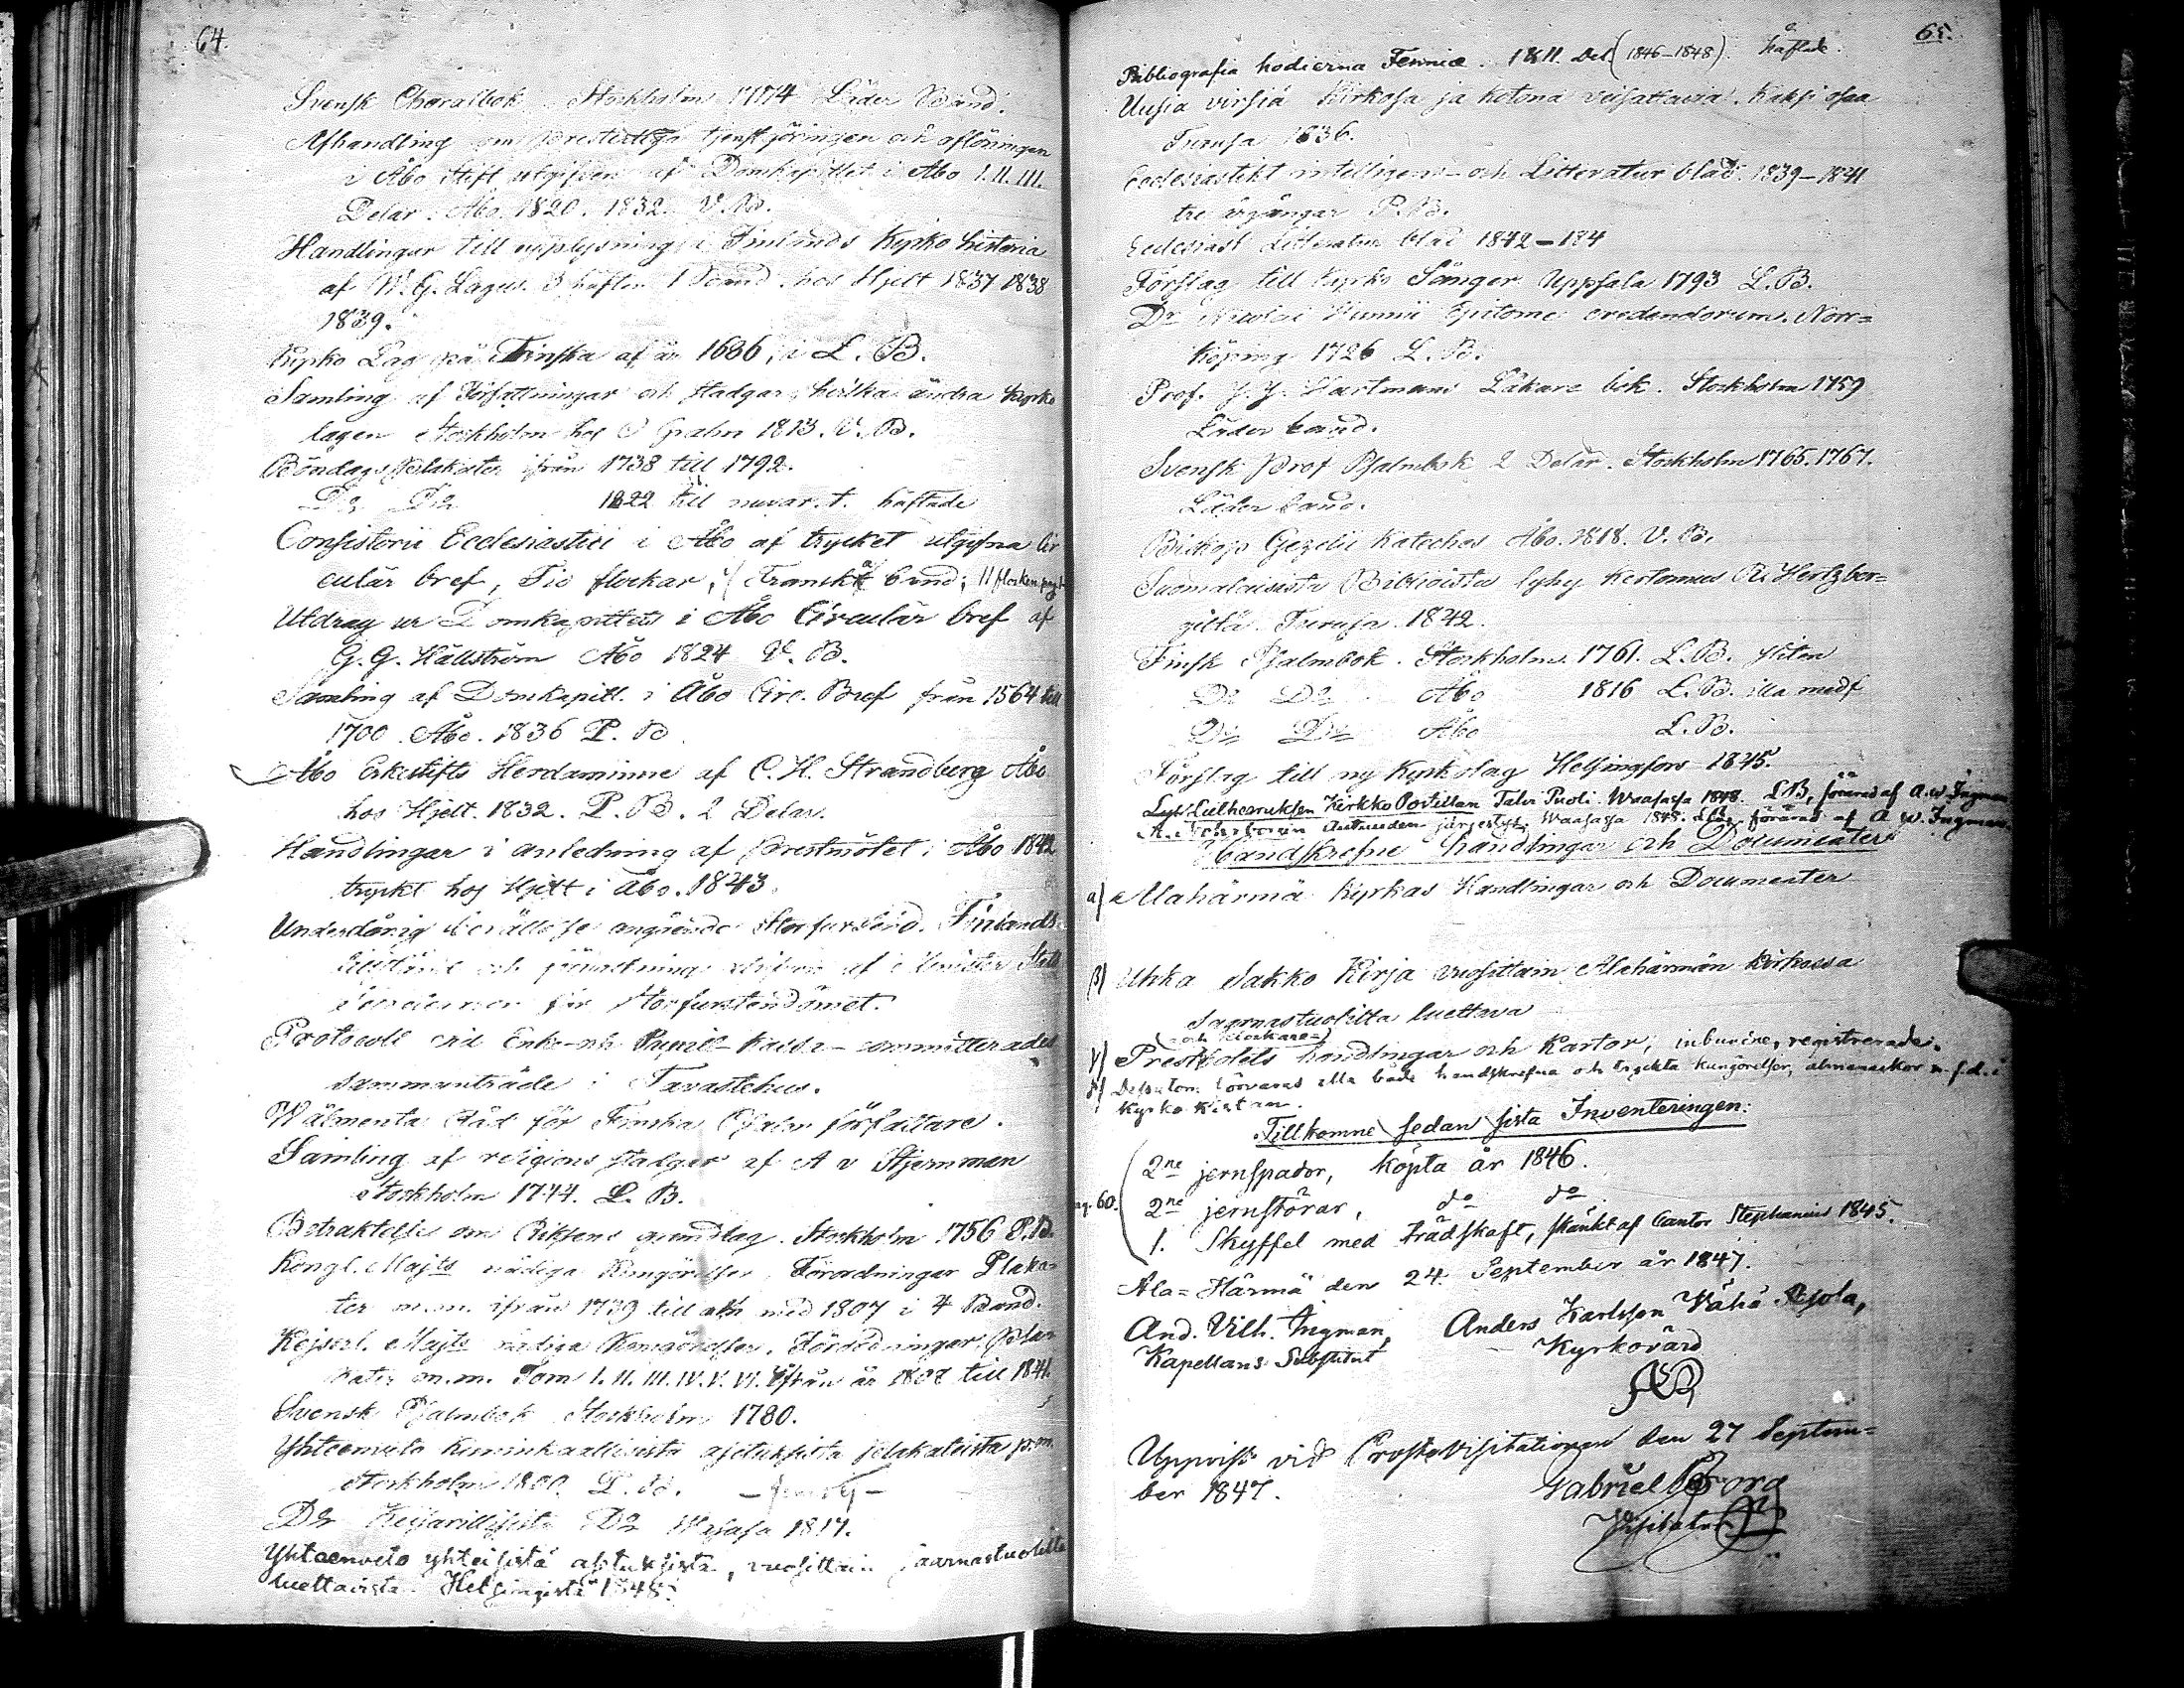 64.
Svensk Choralbok Stockholm 1774 Läder Band.
Afhandling om Presterliga tjenstgöringen och aflöningen
i Åbo Stift utgifven af Domkapitlet i Åbo I. II. III.
Delar. Åbo. 1820. 1832. V. B.
Handlingar till upplysning i Finlands Kyrko historia
af W. G. Lagus. 3 häften 1 Band. hos Hjelt 1837 1838
1839.
Kyrko Lag på Finska af år 1686, i L. B.
Samling af Författningar och stadgar, hvilka ändra kyrko
lagen Stockholm hos Grahn 1813. V. B.
Böndags Plakater ifrån 1738 till 1792.
Do Do 1822 till nuvar. t. häftade
Consistorii Ecclesiastici i Åbo af trycket utgifna Cir
culär bref, Tio flockar, i Franskt band; 11 flocken
Utdrag ur Domkapitlets i Åbo Circulär bref af
G. G. Hällström Åbo 1824 V. B.
Samling af Domkapitl. i Åbo Circ. Bref från 1564 till
1700. Åbo. 1836 P. B
Åbo Erkestifts Herdaminne af C. H. Strandberg Åbo
hos Hjelt. 1832. P. B. 2 Delar.
Handlingar i anledning af Prestmötet i Åbo 1842
tryckt hos Hjelt i Åbo. 1843.
Underdånig berättelse angående Storfurstend. Finlands
och förvaltning af Minister Stats
för Storfurstendömet.
Protocoll vid Enke- och Pupill-Kassa-committerades
sammanträde i Tavastehus.
Wälmenta Råd för Finska Psalm författare.
Samling af religions stadgar af A v Stjernman
Stockholm 1744. L. B.
Betraktelse om Riksens grundlag. Stockholm 1756 P. B.
Kongl. Majts nådiga Kungörelser, Förordningar Plaka=
ter m.m. ifrån 1739 till och med 1807 i 4 Band.
Kejserl. Majts nådiga Kungörelser, Förordningar, Pla=
kater m.m. Tom I. II. III. IV. V. VI. ifrån år 1808 till 1841.
Svensk Psalmbok Stockholm 1780.
Yhteenveto Kuninkaallisista asetuksista plakateista p.m.
Stockholm 1800. P. B.
Do Keisarillisista Do Wasasa 1817.
Yhteenveto yhteisistä asetuksista, vuosittain saarnastuolilta
luettavista. Helsingistä 1848.
65.
Bibliografia hodierna Fennica. I & II. Del. (1846-1848). häftade.
Uusia virsiä Kirkosa ja kotona veisattavia. Kaksi osaa
Turusa 1836.
Ecclesiastikt intelligens- och Litteratur blad. 1839-1841
tre årgångar P. B.
Ecclesiast Litteratur blad 1842-184
Förslag till Kyrko Sånger Uppsala 1793 L. B.
Dr Nicolai Hunnii Epitome credendorum. Norr=
köping 1726 L. B.
Prof. J. J. Hartmans Läkare bok. Stockholm 1759
Läder band.
Svensk Prof Psalmbok 2 Delar. Stockholm 1765. 1767.
Läder band.
Biskop Gezelii Kateches Åbo. 1818. V. B.
Suomalaisista Biblioista lyhy Kertomus R. Hertzber=
giltä. Turusa. 1842.
Finsk Psalmbok. Stockholm. 1761. L. B. sliten
Do Do Åbo 1816 L. B. illa medf
Do Do Åbo L. B.
Förslag till ny Kyrkolag Helsingfors 1845.
Kirkko Postillan Talvi Puoli. Waasassa 1848. L B, förärad af A. W. Ingman
Autuuden järjestys. Waasassa 1845. förärad af A. W. Ingman.
Handskrefne handlingar och Documenter
a) Alahärmä kyrkas Handlingar och Documenter
β) Uhka Sakko Kirja vuosittain Alahärmän Kirkossa
Saarnastuolilta luettava
(och Klockare=)
γ) Prestbolets handlingar och Kartor; inbundne, registrerade.
δ) Dessutom förvaras alla både handskrefna och tryckta kungörelser, almanackor m.f.d. i
Kyrko Kistan.
Tillkomne sedan sista Inventeringen:
pag. 60.
2ne jernspador, köpta år 1846.
2ne jernstörar, do do
1. Skyffel med trädskaft, skänkt af Cantor Stephanius 1845.
Ala=Härmä den 24 September år 1847.
And. Vilh. Ingman, Anders Karlsson Vähä
Kapellans Substitut Kyrkovärd
Uppvist vid Prostevisitationen den 27 Septem=
ber 1847. Gabriel Borg
Visitator